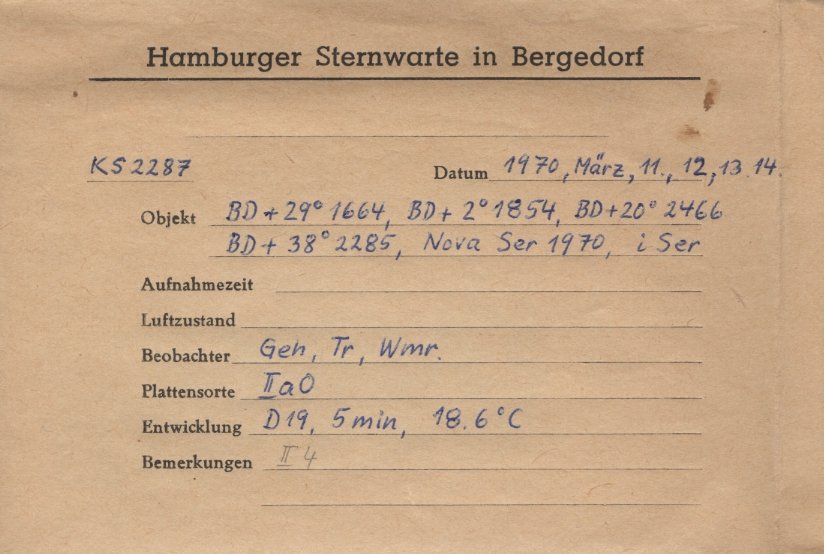 Hamburger Sternwarte in Bergedorf
KS 2287 Datum 1970, März, 11., 12, 13. 14.
Objekt BD + 29° 1664, BD + 2° 1854, BD + 20° 2466
BD + 38° 2285, Nova Ser 1970, i Ser
Aufnahmezeit
Luftzustand
Beobachter Geh, Tr, Wmr.
Plattensorte IIaO
Entwicklung D19, 5 min, 18.6°C
Bemerkungen II 4